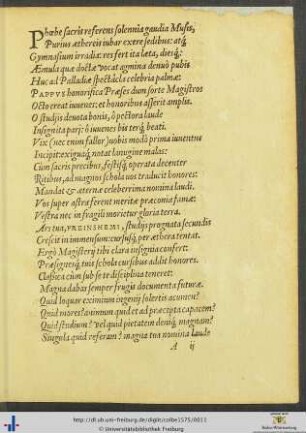 Phœbe sacris referens solennia gaudia Musis,
Purius æthereis iubar exere sedibus: atq́;
Gymnasium irradia: res fert ita læta, diesq́;
Æmula quæ doctæ vocat agmina denuò pubis
Huc ad Palladiæ spectacla celebria palmæ:
PAPPVS honorifica Præses dum sorte Magistros
Octo creat iuuenes: et honoribus asserit amplis.
O studijs deuota bonis, ô pectora laude
Insignita pari; ô iuuenes bis terq́; beati.
Vix (nec enim fallor) vobis modò prima iuuentus
Incipit: exiguaq́; notat lanugine malas:
Cum sacris precibus, festisq́; operata decenter
Ritibus, ad magnos schola vos traducit honores:
Mandat & æternæ celeberrima nomina laudi.
Vos super astra ferent meritæ præconia famæ:
Vestra nec in fragili morietur gloria terra.
Ars tua, FREINSHEMI, studijs prognata secundis
Crescit in immensum: cursusq́; per æthera tentat.
Ergò Magisterij tibi clara insignia confert:
Præsegnesq́; tuis schola cursibus addit honores.
Classica cùm sub se te disciplina teneret:
Magna dabas semper frugis documenta futuræ.
Quid loquar eximium ingenij solertis acumen?
Quid mores? animum quid et ad præcepta capacem?
Quid studium? vel quid pietatem deniq́; magnam?
Singula quid referam? magna tua nomina laude
A ij
http://dl.ub.uni-freiburg.de/diglit/colbe1575/0011
© Universitätsbibliothek Freiburg
Baden-Württemberg